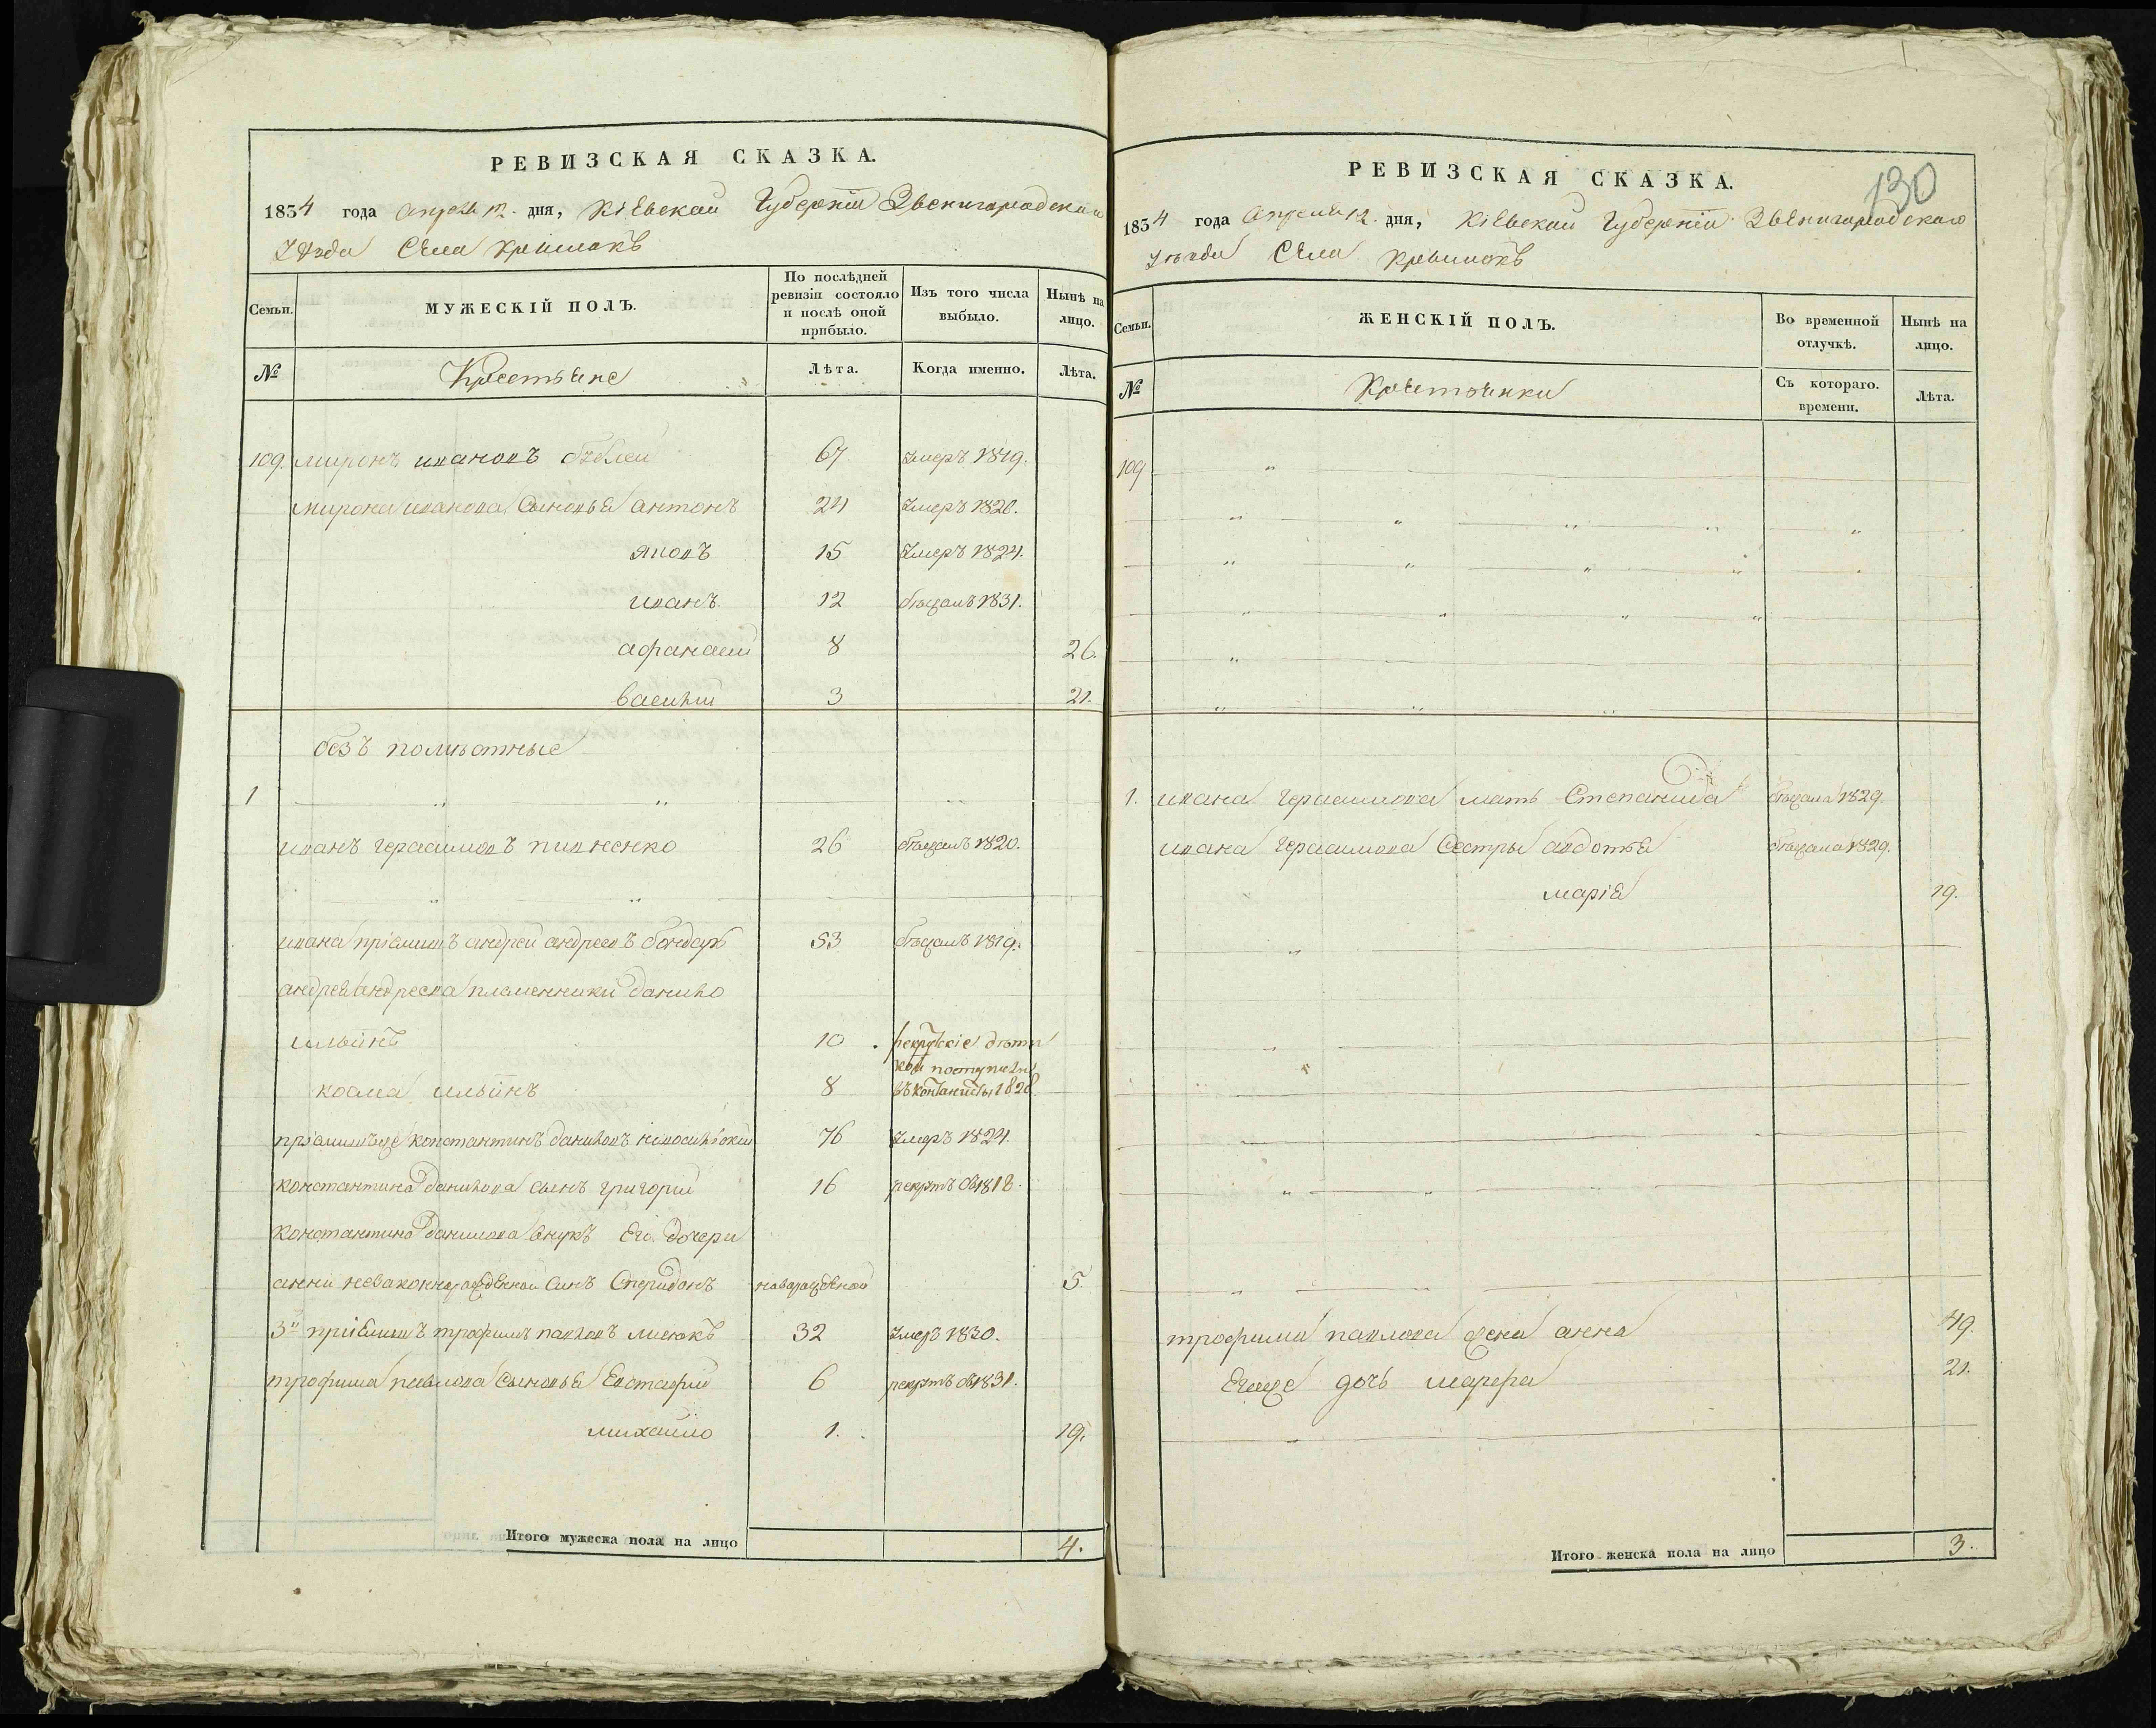 РЕВИЗСКАЯ СКАЗКА.
1834 года апреля 12. дня, Кіевской Губерніи Звенигородского
Уѣзда Села
Семьи.
МУЖЕСКІЙ ПОЛЪ.
По послѣдней ревизіи состояло и послѣ оной прибыло.
Изъ того числа выбыло.
Нынѣ на лицо.
№
Крестьяне
Лѣта.
Когда именно.
Лѣта.
109. миронъ ивановъ 67 умеръ 1819.
мирона иванова Сыновья антонъ 24 умеръ 1820.
яковъ 15 умеръ 1824.
иванъ. 12 бѣжалъ 1831.
афанасій 8 26.
василій 3 21.
безъ помѣстные
1 " "
иванъ герасимовъ пивненко 26 бѣжалъ 1820.
" "
ивана пріамишъ андрей андреевъ бондарь 53 бѣжалъ 1819.
андрея андреева племенники данило
ильинъ 10 . рекрутскіе дѣти
кои поступили
козма ильинъ 8 въ контанисты 1828.
константинъ даниловъ 76 умеръ 1824.
константина данилова сынъ григорій 16 рекрутъ въ 1818.
константина данилова внукъ Его дочери
анни незаконнорожденной Синъ Спиридонъ новорожденной 5.
3й пріемишъ трофимъ павловъ 32 умеръ 1830.
трофима павлова Сыновья Евстафій 6 рекрутъ въ 1831.
михайло 1. 19.
Итого мужеска пола на лицо 4.
130
РЕВИЗСКАЯ СКАЗКА.
1834 года апреля 12. дня, Кіевской Губерніи Звенигородского
Уѣзда Села
Семьи.
ЖЕНСКІЙ ПОЛЪ.
Во временной отлучкѣ.
Нынѣ на лицо.
№
Крестьянки
Съ котораго. времени.
Лѣта.
109 "
1. ивана герасимова мать Степанида бѣжала 1829.
ивана герасимова Сестры авдотья бѣжала 1829.
марія 19.
трофима павлова жена анна 49.
Егоже дочь марфа 21.
Итого женска пола на лицо 3.